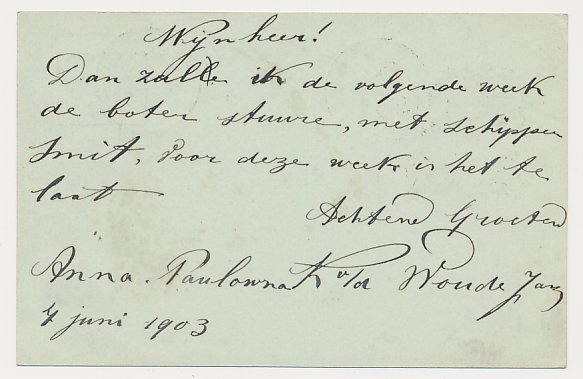 Mijnheer!
Dan zulle ik de volgende week
de boter stuure, met schipper
Smit, Voor deze week is het te
laat
Achtend Groetend
Anna Paulowna K v/d Woude Jzn
4 juni 1903